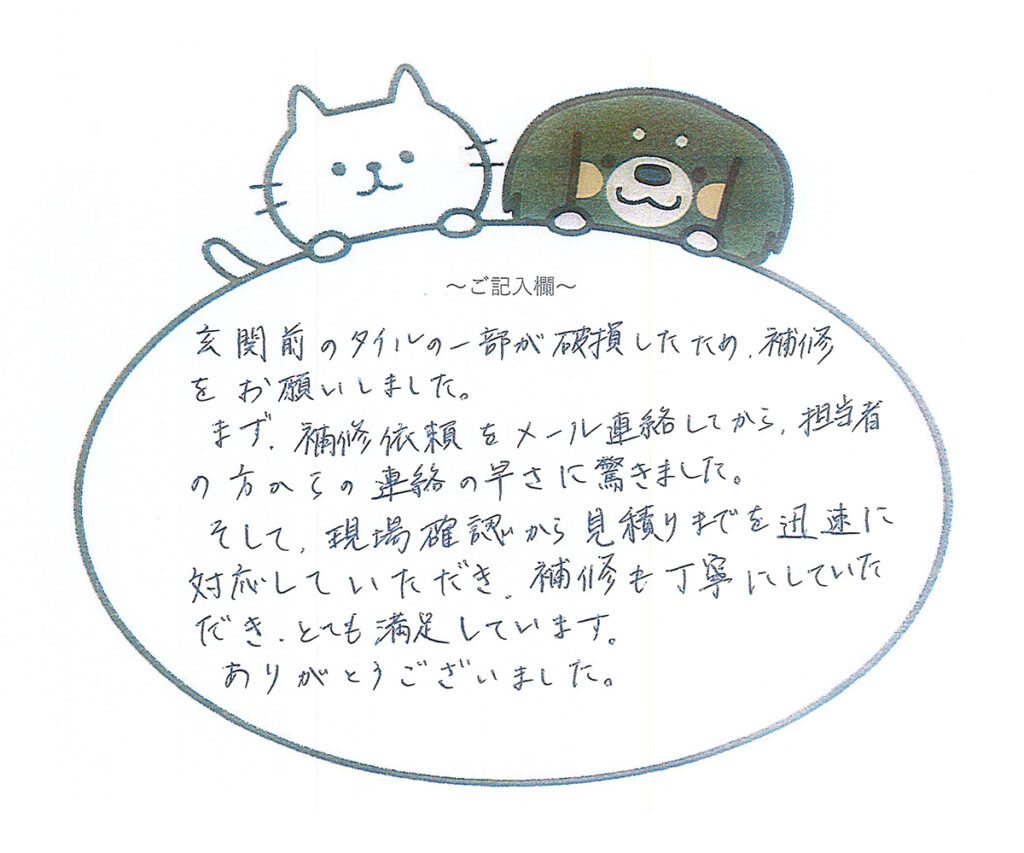 ～ご記入欄～
玄関前のタイルの一部が破損したため、補修
をお願いしました。
まず、補修依頼をメール連絡してから、担当者
の方からの連絡の早さに驚きました。
そして、現場確認から見積りまでを迅速に
対応していただき、補修も丁寧にしていた
だき、とても満足しています。
ありがとうございました。